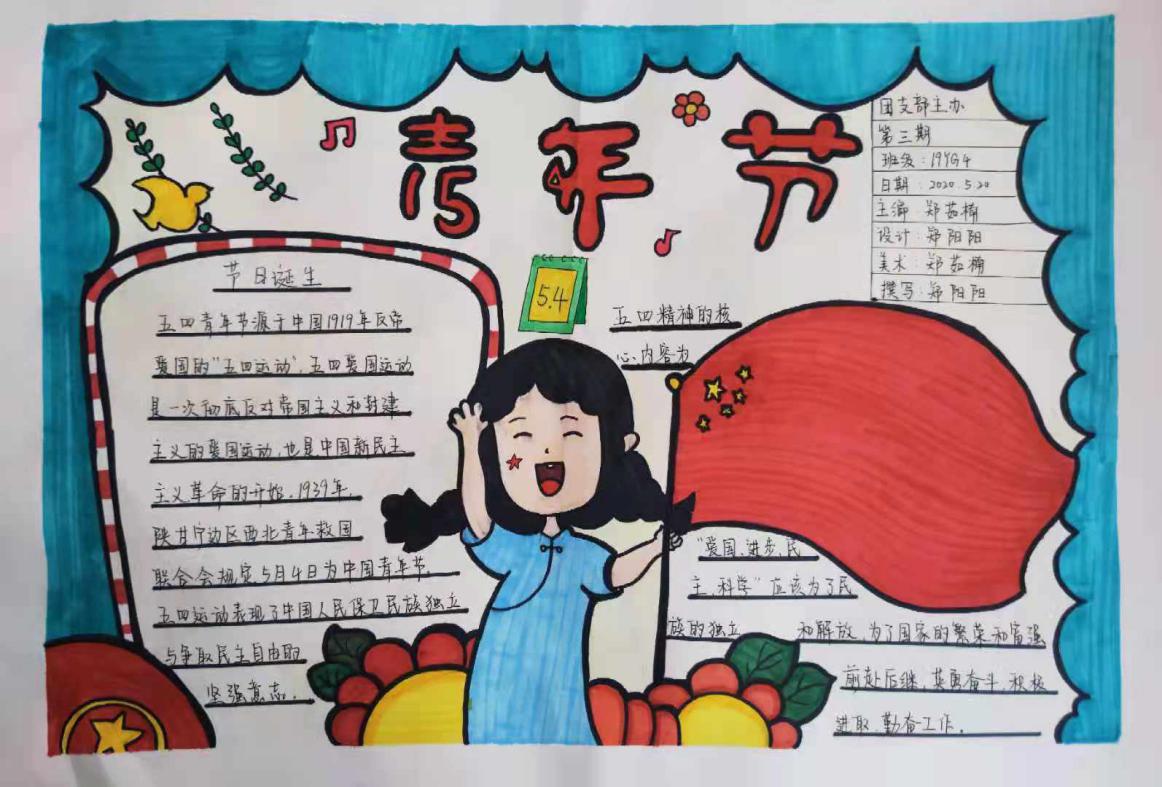 青年节
团支部主办
第三期
班级:19YG4
日期:2020.5.20
主编:郑茹楠
设计:郑阳阳
美术:郑茹楠
撰写:郑阳阳
5.4
节日诞生
五四青年节源于中国1919年反帝
爱国的"五四运动",五四爱国运动
是一次彻底反对帝国主义和封建
主义的爱国运动,也是中国新民主
主义革命的开始。1939年,
陕甘宁边区西北青年救国
联合会规定5月4日为中国青年节.
五四运动表现了中国人民保卫民族独立
与争取民主自由的
坚强意志.
五四精神的核
心内容为
"爱国、进步、民
主、科学"应该为了民
族的独立 和解放,为了国家的繁荣和富强
前赴后继,英勇奋斗,积极
进取,勤奋工作。